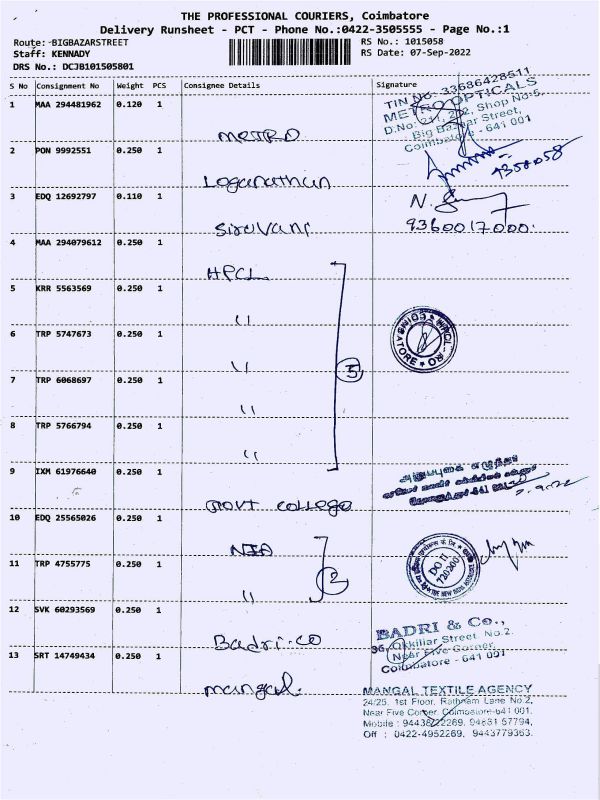 THE PROFESSIONAL COURIERS, Coimbatore
Delivery Runsheet - PCT - Phone No.:0422-3505555 - Page No.:1
Route: -BIGBAZARSTREET
Staff: KENNADY
DRS No.: DCJB101505801
RS No.: 1015058
RS Date: 07-Sep-2022
S No Consignment No Weight PCS Consignee Details Signature
1 MAA 294481962 0.120 1
METRO
TIN No: 33686428511
METRO OPTICALS
D.No: 211, 212, Shop No:5,
Big Bazaar Street,
Coimbatore - 641 001
2 PON 9992551 0.250 1
Loganathan
3 EDQ 12692797 0.110 1
Siruvani
9360017000
4 MAA 294079612 0.250 1
HPCL
5 KRR 5563569 0.250 1
"
6 TRP 5747673 0.250 1
"
COIMBATORE
7 TRP 6068697 0.250 1
"
5
8 TRP 5766794 0.250 1
"
9 IXM 61976640 0.250 1
Govt College
7.9.22
10 EDQ 25565026 0.250 1
NIA
11 TRP 4755775 0.250 1
"
2
DO II
720200
12 SVK 60293569 0.250 1
Badri-co
BADRI & Co.,
Street, No.2.
Near Five Corner,
Coimbatore - 641 001
13 SRT 14749434 0.250 1
mangal
MANGAL TEXTILE AGENCY
24/25, 1st Floor, Rathnam Lane No.2,
Near Five Corner, Coimbatore-641 001.
Mobile : 9443822269, 94881 57794,
Off : 0422-4952269, 9443779363.